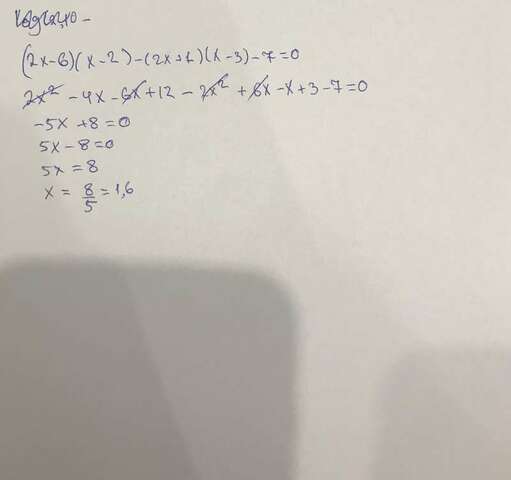 (2x-6)(x-2)-(2x+1)(x-3)-7=0
2x² -4x-6x+12-2x²+6x-x+3-7=0
-5x+8=0
5x-8=0
5x=8
x= 8/5 =1,6